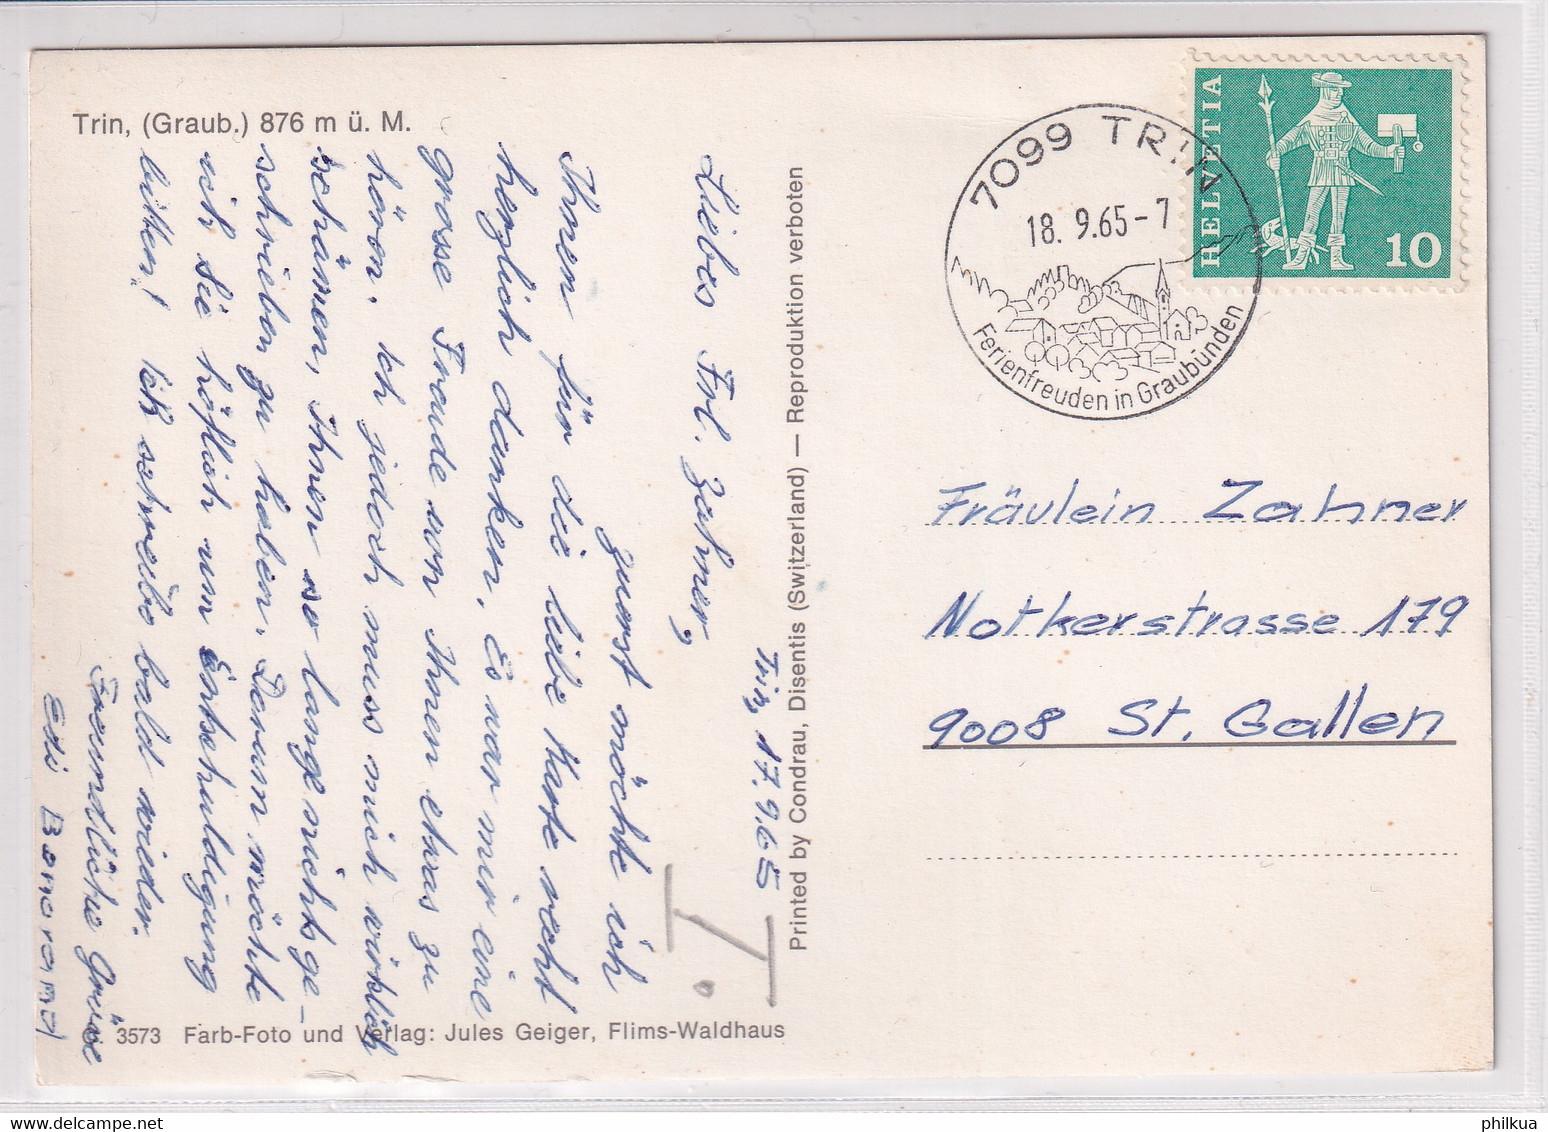 Trin, (Graub.) 876 m ü. M.
Trin, 17.9.65
Liebes Frl. Zahner,
zuerst möchte ich
Ihnen für die liebe Karte recht
herzlich danken. Es war mir eine
grosse Freude von Ihnen etwas zu
hören. Ich jedoch muss mich wirklich
schämen, Ihnen so lange nichts ge-
schrieben zu haben. Darum möchte
ich Sie höflich um Entschuldigung
bitten! Ich schreibe bald wieder.
Freundliche Grüsse
Edi
3573 Farb-Foto und Verlag: Jules Geiger, Flims-Waldhaus
Printed by Condrau, Disentis (Switzerland) — Reproduktion verboten
7099 TRIN
18. 9.65-7
Ferienfreuden in Graubünden
HELVETIA
10
Fräulein Zahner
Notkerstrasse 179
9008 St. Gallen
philkua